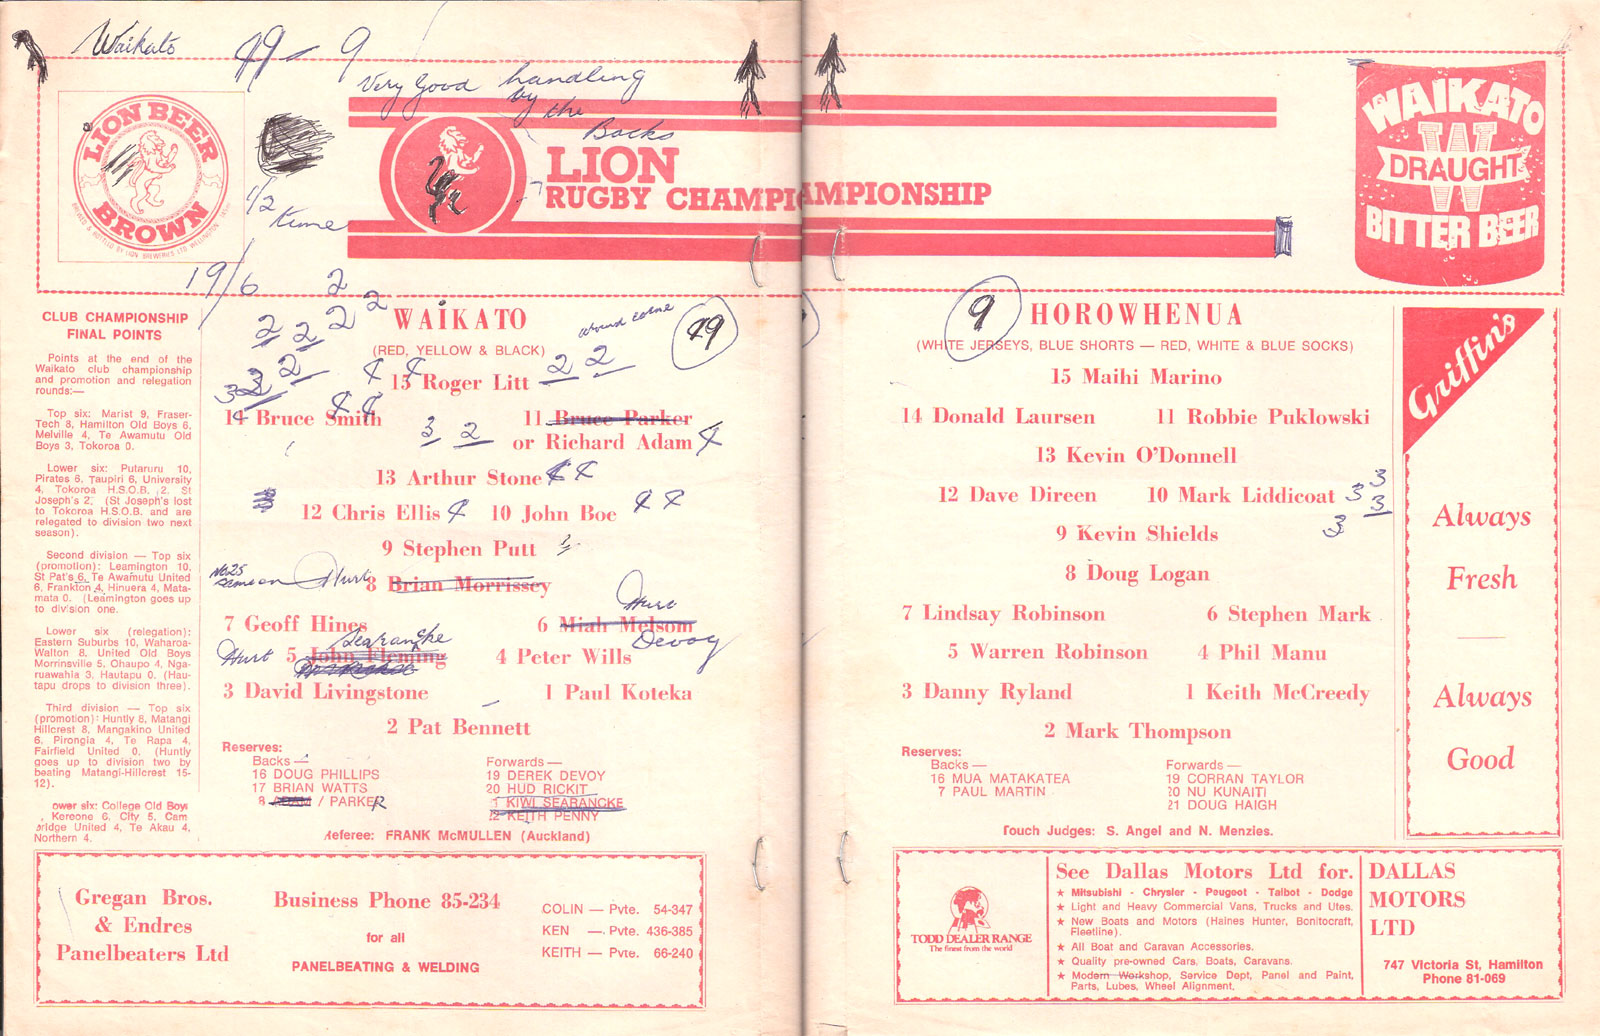 Waikato 49 - 9
Very Good handling
by the
Backs
LION BEER
BROWN
BREWED & BOTTLED BY LION BREWERIES LTD WELLINGTON
1/2
19/6
LION
RUGBY CHAMPI AMPIONSHIP
WAIKATO
W
DRAUGHT
BITTER BEER
CLUB CHAMPIONSHIP
FINAL POINTS
Points at the end of the
Waikato club championship
and promotion and relegation
rounds:—
Top six: Marist 9, Fraser-
Tech 8, Hamilton Old Boys 6,
Melville 4, Te Awamutu Old
Boys 3, Tokoroa 0.
Lower six: Putaruru 10,
Pirates 6, Taupiri 6, University
4, Tokoroa H.S.O.B. 2, St
Joseph's 2, (St Joseph's lost
to Tokoroa H.S.O.B. and are
relegated to division two next
season).
Second division — Top six
(promotion): Leamington 10,
St Pat's 6, Te Awamutu United
6, Frankton 4, Hinuera 4, Mata-
mata 0. (Leamington goes up
to division one.
Lower six (relegation):
Eastern Suburbs 10, Waharoa-
Walton 8, United Old Boys
Morrinsville 5, Ohaupo 4, Nga-
ruawahia 3, Hautapu 0. (Hau-
tapu drops to division three).
Third division — Top six
(promotion): Huntly 8, Matangi
Hillcrest 8, Mangakino United
6, Pirongia 4, Te Rapa 4,
Fairfield United 0. (Huntly
goes up to division two by
beating Matangi-Hillcrest 15-
12).
ower six: College Old Boys
, Kereone 6, City 5, Cam
bridge United 4, Te Akau 4,
Northern 4.
2
2 2
2 2
WAIKATO
49
(RED, YELLOW & BLACK)
2
15 Roger Litt 2 2
14 Bruce Smith
11 Bruce Parker
3 2
or Richard Adam 4
13 Arthur Stone 4 4
12 Chris Ellis 4 10 John Boe 4 4
9 Stephen Putt
No 25
Hurt
8 Brian Morrissey
Hurt
7 Geoff Hines 6 Miah Melsom
Searancke
Devoy
Hurt 5 John Fleming 4 Peter Wills
3 David Livingstone 1 Paul Koteka
2 Pat Bennett
Reserves:
Backs —
16 DOUG PHILLIPS
17 BRIAN WATTS
8 ADAM / PARKER
Forwards —
19 DEREK DEVOY
20 HUD RICKIT
1 KIWI SEARANCKE
22 KEITH PENNY
Referee: FRANK McMULLEN (Auckland)
9 HOROWHENUA
(WHITE JERSEYS, BLUE SHORTS — RED, WHITE & BLUE SOCKS)
15 Maihi Marino
14 Donald Laursen 11 Robbie Puklowski
13 Kevin O'Donnell
12 Dave Direen 10 Mark Liddicoat 3 3
3
3
9 Kevin Shields
8 Doug Logan
7 Lindsay Robinson 6 Stephen Mark
5 Warren Robinson 4 Phil Manu
3 Danny Ryland 1 Keith McCreedy
2 Mark Thompson
Reserves:
Backs —
16 MUA MATAKATEA
7 PAUL MARTIN
Forwards —
19 CORRAN TAYLOR
20 NU KUNAITI
21 DOUG HAIGH
Touch Judges: S. Angel and N. Menzies.
Griffin's
Always
Fresh
Always
Good
Gregan Bros.
& Endres
Panelbeaters Ltd
Business Phone 85-234
for all
PANELBEATING & WELDING
COLIN — Pvte. 54-347
KEN — Pvte. 436-385
KEITH — Pvte. 66-240
TODD DEALER RANGE
The finest from the world
See Dallas Motors Ltd for.
★ Mitsubishi - Chrysler - Peugeot - Talbot - Dodge
★ Light and Heavy Commercial Vans, Trucks and Utes.
★ New Boats and Motors (Haines Hunter, Bonitocraft,
Fleetline).
★ All Boat and Caravan Accessories.
★ Quality pre-owned Cars, Boats, Caravans.
★ Modern Workshop, Service Dept, Panel and Paint,
Parts, Lubes, Wheel Alignment,
DALLAS
MOTORS
LTD
747 Victoria St, Hamilton
Phone 81-069